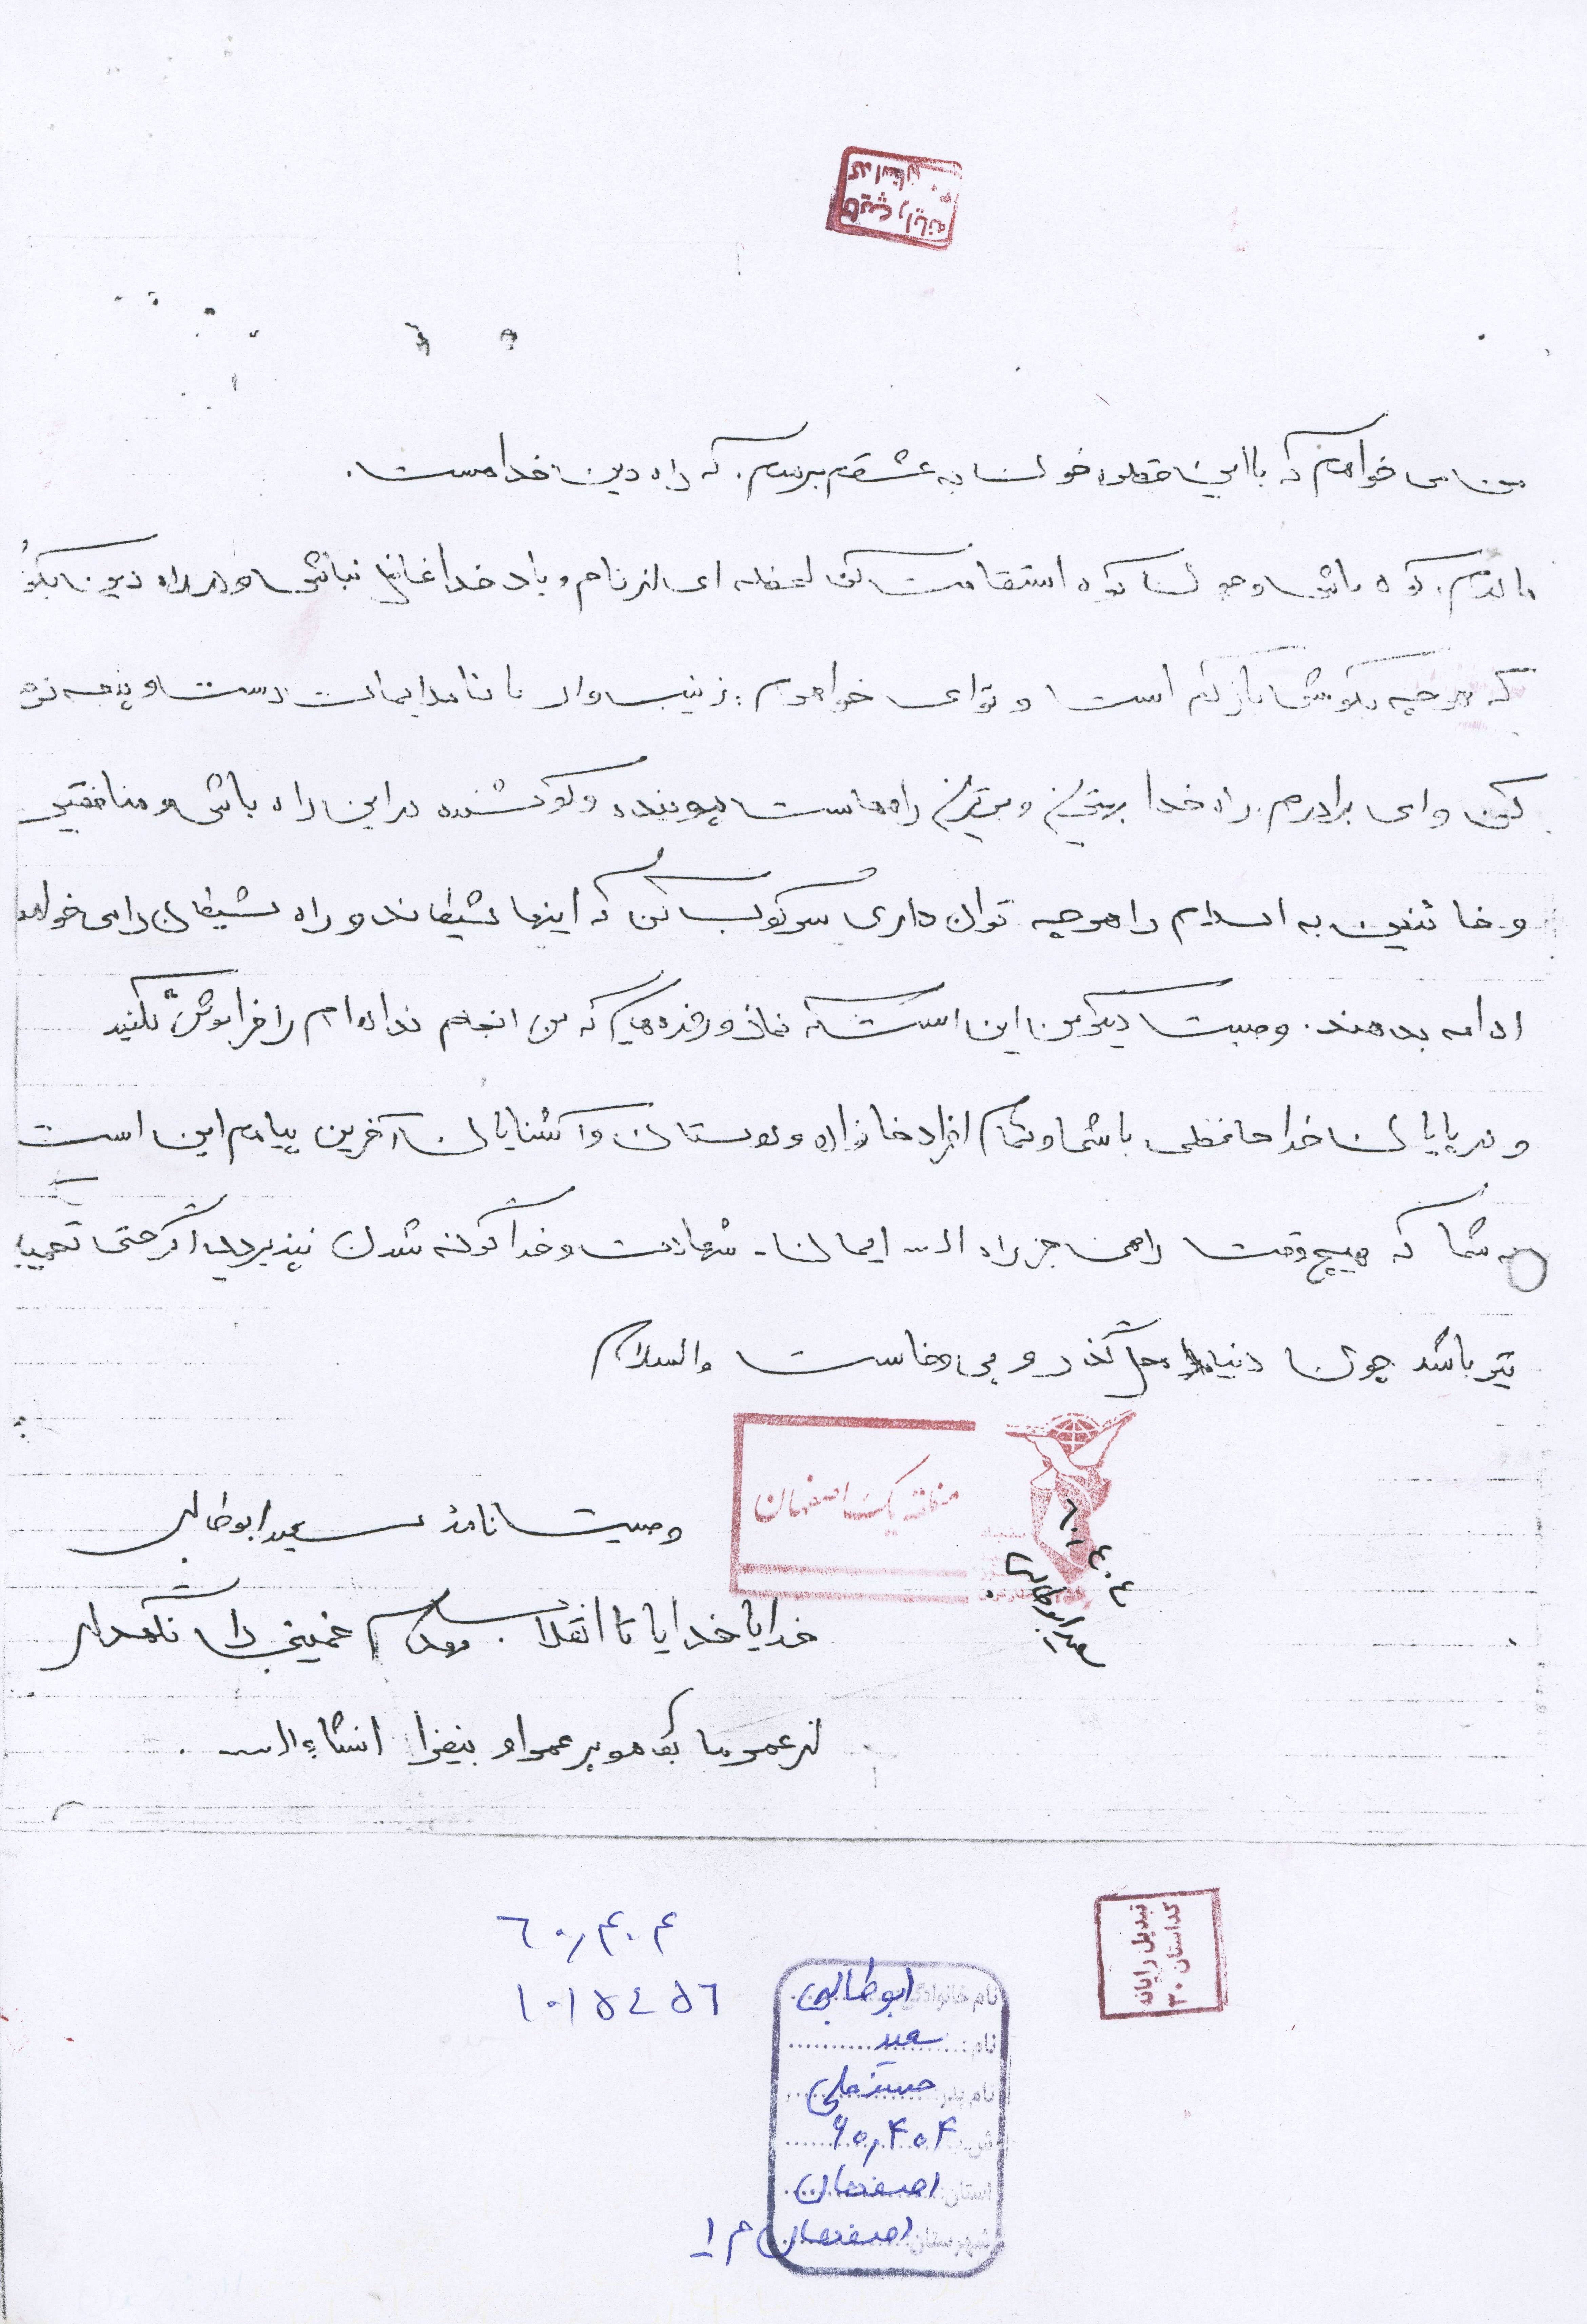 تبدیل رایانه
کد استان
من می خواهم که با این قطره خون به عشقم برسم. که راه دین خداست.
مادرم. کوه باش و چون کوه استقامت کن لحظه ای از نام و یاد خدا غافل نباش و در راه دین بکوش
که هرچه بکوشی باز کم است و تو ای خواهرم: زینب وار با نامدایمان دست و پنجه نرم
کن و ای برادرم. راه خدا بهترین و برترین راههاست پوینده و کوشنده در این راه باش و منافقین
و خائنین به اسلام را هرچه توان داری سرکوب کن که اینها شیطاند و راه شیطان را می خواهند
ادامه بدهند. وصیت دیگر من این است که نماز و روزه هایم که من انجام نداده ام را فراموش نکنید
و در پایان خداحافظی با شما و تمام افراد خانواده و دوستان و آشنایان آخرین پیامم این است
به شما که هیچ وقت راهی جز راه الله ایمان - شهادت و خداگونه شدن نپذیرید اگر حتی
تیر باشد چون دنیا محل گذر و بی وفاست والسلام
منطقه یک اصفهان
وصیت نامه سعید ابوطالبی
۶۰۱۴۰۴
سعید ابوطالبی
خدایا خدایا تا انقلاب مهدی خمینی را نگهدار
از عمر ما بکاه و بر عمر او بیفزا انشاء الله .
۶۰۱۴۰۴
۱۰۱۵۴۵۶
تبدیل رایانه
کد استان ۳۰
نام خانوادگی ابوطالبی
نام: سعید
نام پدر حسینعلی
۶۰,۴۰۴
استان: اصفهان
شهرستان اصفهان م ۱